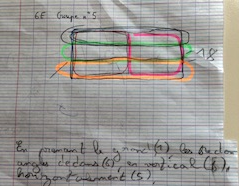 6E Groupe n°5
18
En prenant le grand (1), les rect
angles dedans (6) en vertical (6),
horizontalement (5),